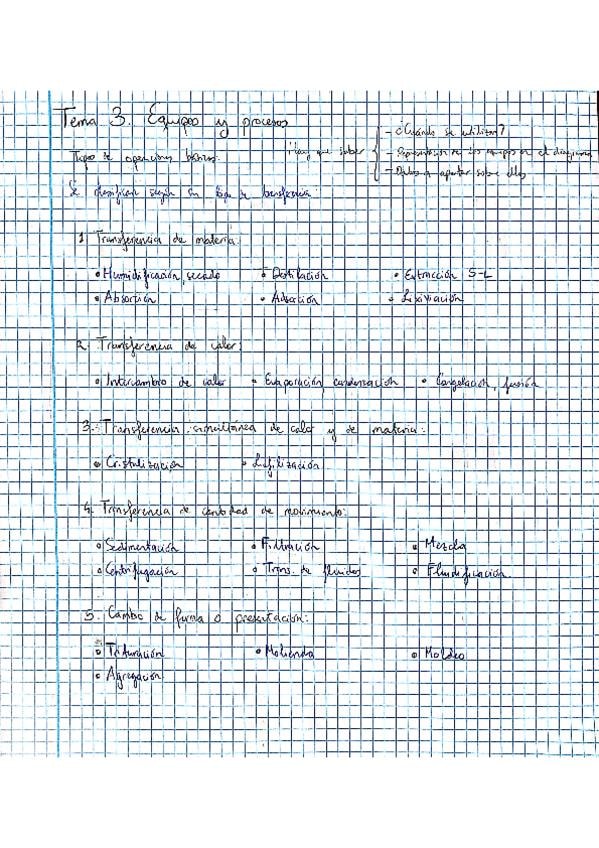 Tema 3. Equipos y procesos
Tipos de operaciones básicas: Hay que saber
- ¿Cuándo se utilizan?
- Representación de los equipos en el diagrama
- Datos a aportar sobre ellos
Se clasifican según su tipo de transferencia:
1. Transferencia de materia:
• Humidificación, secado • Destilación • Extracción S-L
• Absorción • Adsorción • Lixiviación
2. Transferencia de calor:
• Intercambio de calor • Evaporación, condensación • Congelación, fusión
3. Transferencia simultánea de calor y de materia:
• Cristalización • Liofilización
4. Transferencia de cantidad de movimiento:
• Sedimentación • Filtración • Mezcla
• Centrifugación • Trans. de fluidos • Fluidificación
5. Cambio de forma o presentación:
• Trituración • Molienda • Moldeo
• Agregación